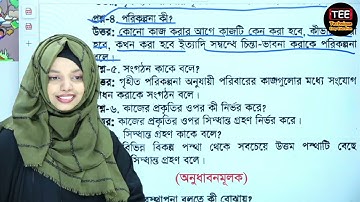 TEE
প্রশ্ন-৪. পরিকল্পনা কী?
উত্তর: কোনো কাজ করার আগে কাজটি কেন করা হবে,
হবে, কখন করা হবে ইত্যাদি সম্বন্ধে চিন্তা-ভাবনা করাকে পরিকল্পনা
বলে।
প্রশ্ন-৫. সংগঠন কাকে বলে?
উত্তর: গৃহীত পরিকল্পনা অনুযায়ী পরিবারের কাজগুলোর মধ্যে সংযোগ
সাধন করাকে সংগঠন বলে।
প্রশ্ন-৬. কাজের প্রকৃতির ওপর কী নির্ভর করে?
কাজের প্রকৃতির ওপর সিদ্ধান্ত গ্রহণ নির্ভর করে।
সিদ্ধান্ত গ্রহণ কাকে বলে?
বিভিন্ন বিকল্প পন্থা থেকে সবচেয়ে উত্তম পন্থাটি বেছে
সিদ্ধান্ত গ্রহণ বলে।
(অনুধাবনমূলক)
বলতে কী বোঝায়?